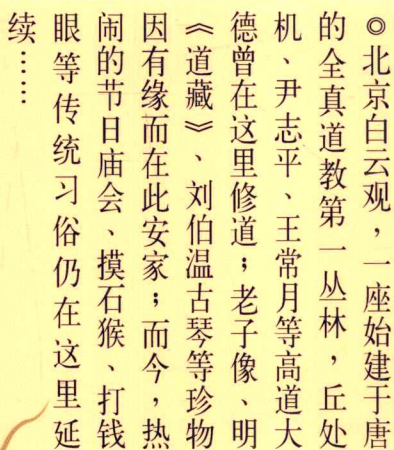 ◎北京白云观，一座始建于唐
的全真道教第一丛林，丘处
机、尹志平、王常月等高道大
德曾在这里修道；老子像、明
《道藏》、刘伯温古琴等珍物
因有缘而在此安家；而今，热
闹的节日庙会、摸石猴、打钱
眼等传统习俗仍在这里延
续……